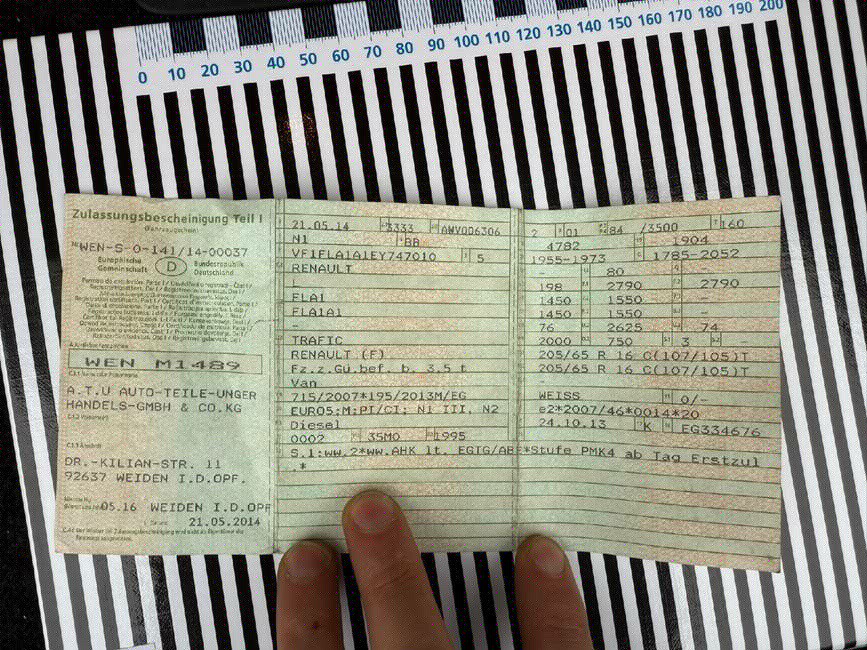 0 10 20 30 40 50 60 70 80 90 100 110 120 130 140 150 160 170 180 190 200
Zulassungsbescheinigung Teil I
(Fahrzeugschein)
WEN-S-0-141/14-00037
Europäische Gemeinschaft D Bundesrepublik Deutschland
WEN M1489
A.T.U AUTO-TEILE-UNGER
HANDELS-GMBH & CO.KG
DR.-KILIAN-STR. 11
92637 WEIDEN I.D.OPF.
05.16 WEIDEN I.D.OPF
21.05.2014
21.05.14 3333 AWV006306
N1 BB
VF1FLA1A1EY747010 5
RENAULT
L
FLA1
FLA1A1
-
TRAFIC
RENAULT (F)
Fz.z.Gü.bef. b. 3,5 t
Van
715/2007*195/2013M/EG
EURO5;M;PI/CI; N1 III, N2
Diesel
0002 35M0 1995
S.1:ww.2*ww.AHK lt. EGTG/ABE*Stufe PMK4 ab Tag Erstzul
.*
2 01 84 /3500 160
4782 1904
1955-1973 1785-2052
- 80 -
198 2790 2790
1450 1550 -
1450 1550 -
76 2625 74
2000 750 3 -
205/65 R 16 C(107/105)T
205/65 R 16 C(107/105)T
-
WEISS 0/-
e2*2007/46*0014*20
24.10.13 K EG334676